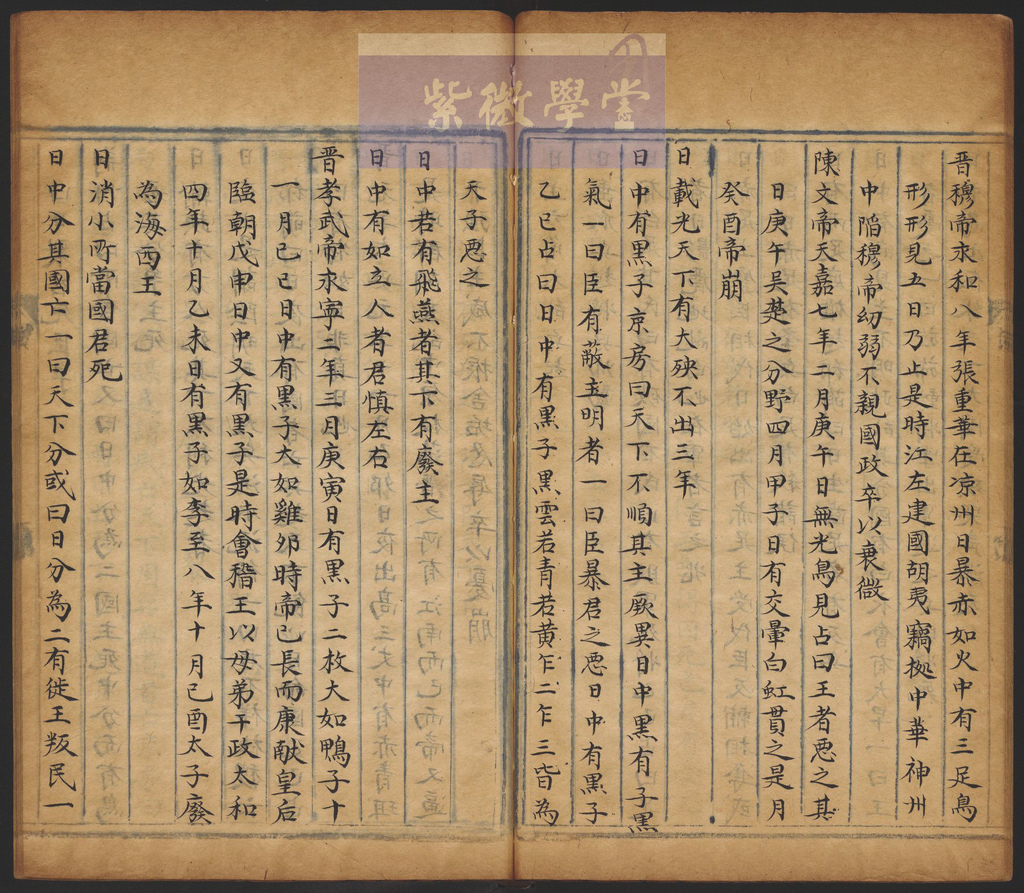 紫微學堂
晋穆帝永和八年張重華在凉州日暴赤如火中有三足鳥
形形見五日乃止是時江左建國胡夷竊拠中華神州
中陷穆帝幼弱不親國政卒以衰微
陳文帝天嘉七年二月庚午日無光鳥見占曰王者惡之其
日庚午吴楚之分野四月甲子日有交暈白虹貫之是月
癸酉帝崩
日載光天下有大殃不出三年
日中有黑子京房曰天下不順其主厥異日中黑有子黑
氣一曰臣有蔽主明者一曰臣暴君之惡日中有黑子
乙巳占曰日中有黑子黑雲若青若黄乍二乍三皆為
天子惡之
日中若有飛燕者其下有廢主
日中有如立人者君慎左右
晋孝武帝永寧二年三月庚寅日有黑子二枚大如鴨子十
一月己巳日中有黑子大如雞卵時帝已長而康献皇后
臨朝戊申日中又有黑子是時會稽王以母弟干政太和
四年十月乙未日有黑子如李至八年十月己酉太子廢
為海西王
日消小所當國君死
日中分其國亡一曰天下分或曰日分為二有徙王叛民一